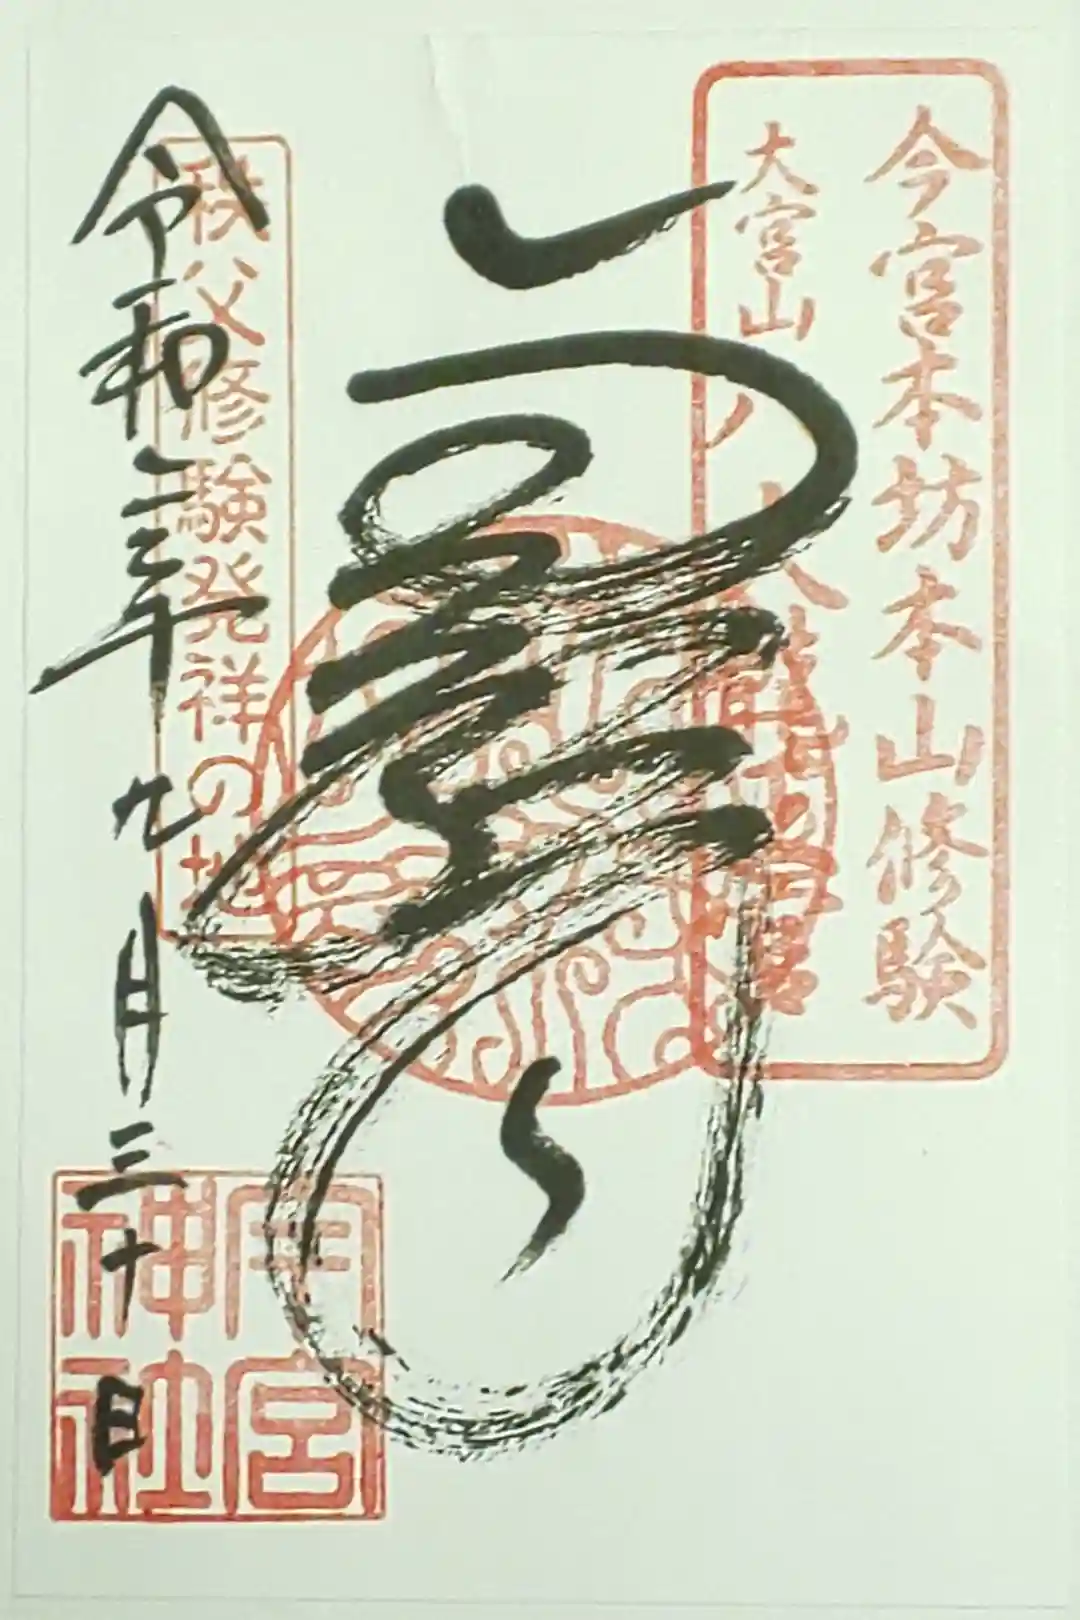 今宮本坊本山修験
大宮山 八大龍王宮
秩父修験発祥の地
令和三年九月三十日
今宮神社